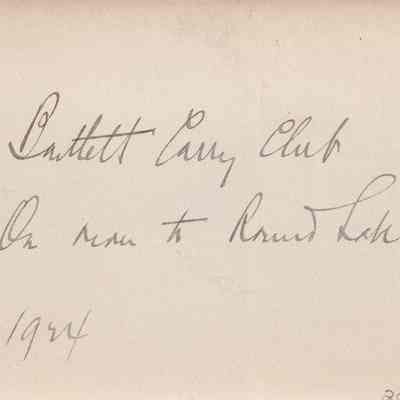 Bartlett Carry Club
On river to Round Lake
1924